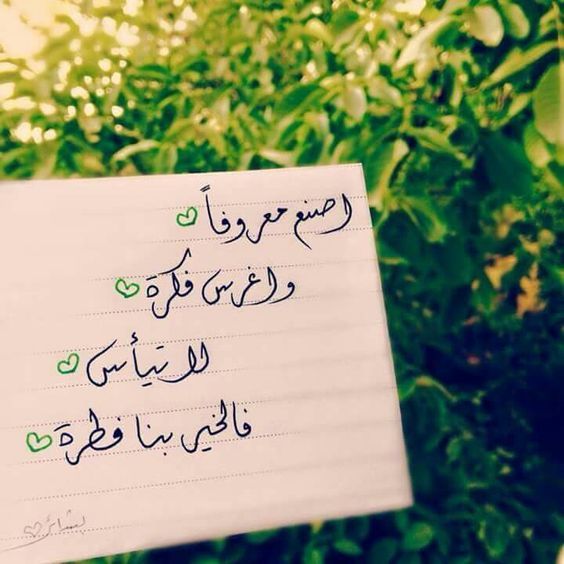 اصنع معروفاً
واغرس فكرة
لا تيأس
فالخير بنا فطرة
بشائر